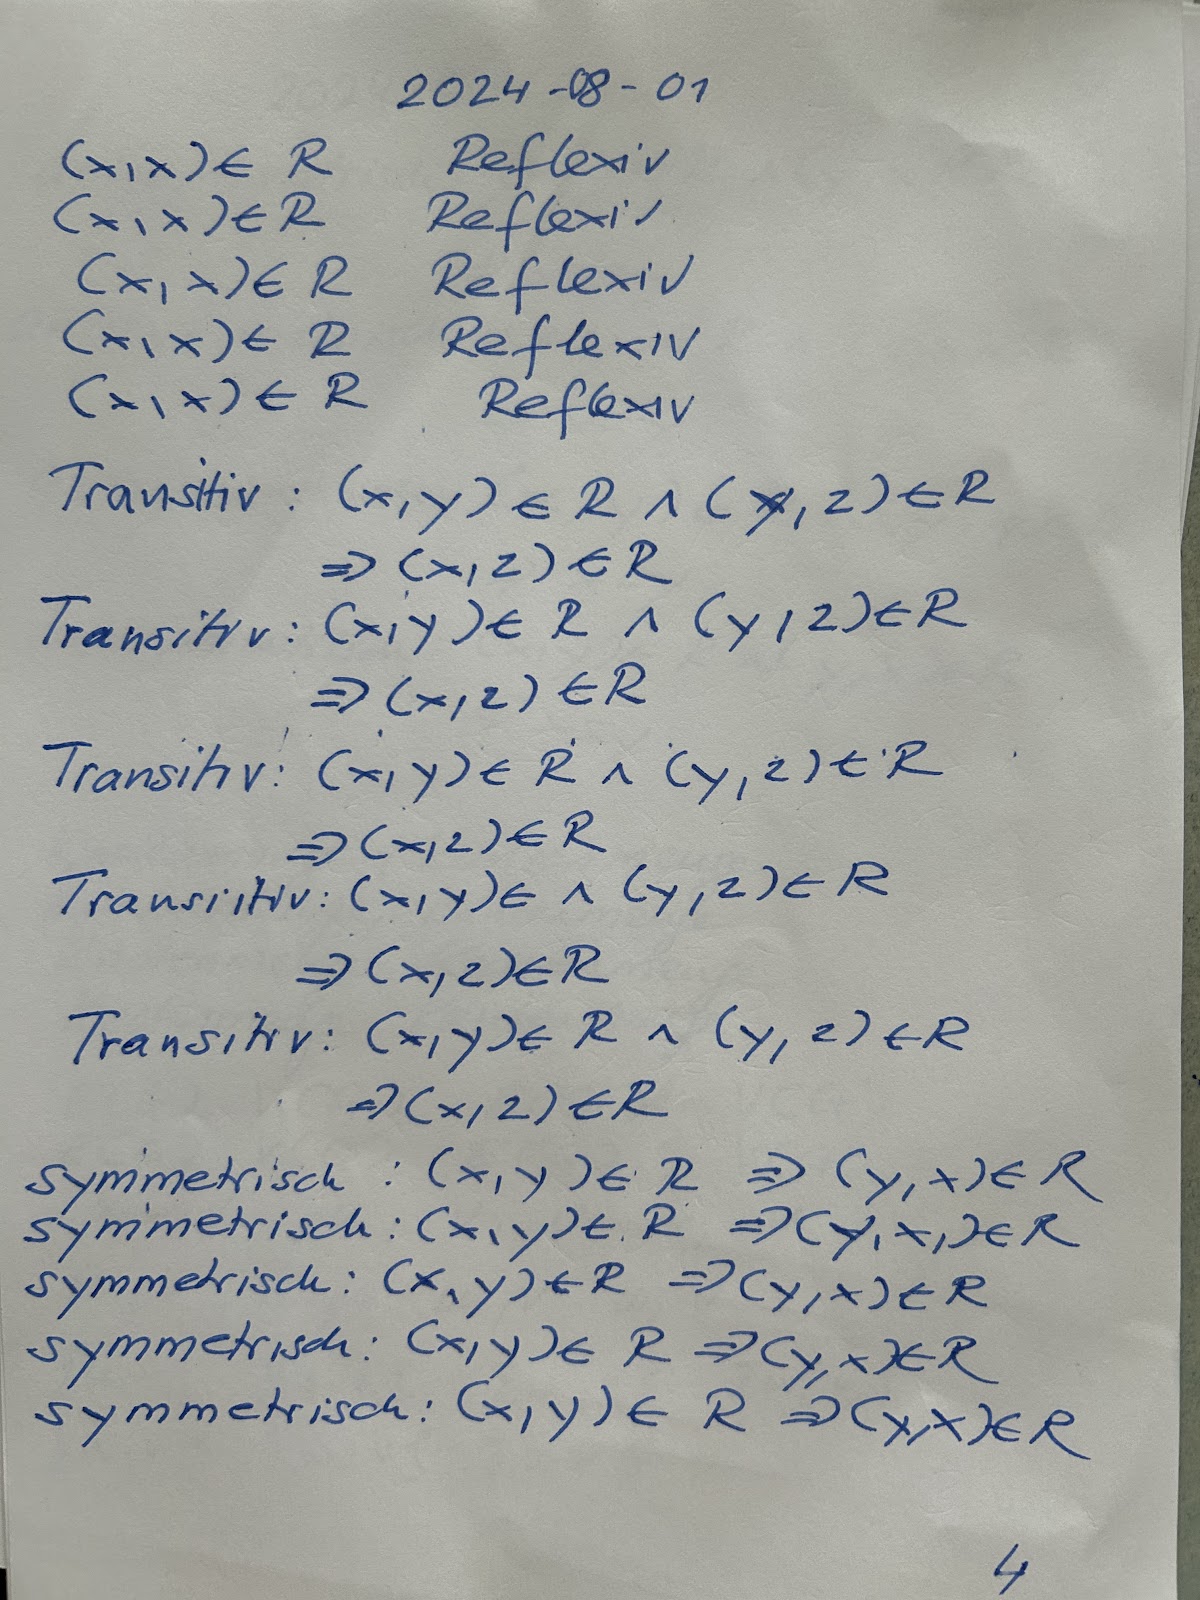 2024-08-01
(x,x) ∈ R Reflexiv
(x,x) ∈ R Reflexiv
(x,x) ∈ R Reflexiv
(x,x) ∈ R Reflexiv
(x,x) ∈ R Reflexiv
Transitiv: (x,y) ∈ R ∧ (y,z) ∈ R
⇒ (x,z) ∈ R
Transitiv: (x,y) ∈ R ∧ (y,z) ∈ R
⇒ (x,z) ∈ R
Transitiv: (x,y) ∈ R ∧ (y,z) ∈ R
⇒ (x,z) ∈ R
Transitiv: (x,y) ∈ ∧ (y,z) ∈ R
⇒ (x,z) ∈ R
Transitiv: (x,y) ∈ R ∧ (y,z) ∈ R
⇒ (x,z) ∈ R
symmetrisch: (x,y) ∈ R ⇒ (y,x) ∈ R
symmetrisch: (x,y) ∈ R ⇒ (y,x,) ∈ R
symmetrisch: (x,y) ∈ R ⇒ (y,x) ∈ R
symmetrisch: (x,y) ∈ R ⇒ (y,x) ∈ R
symmetrisch: (x,y) ∈ R ⇒ (y,x) ∈ R
4